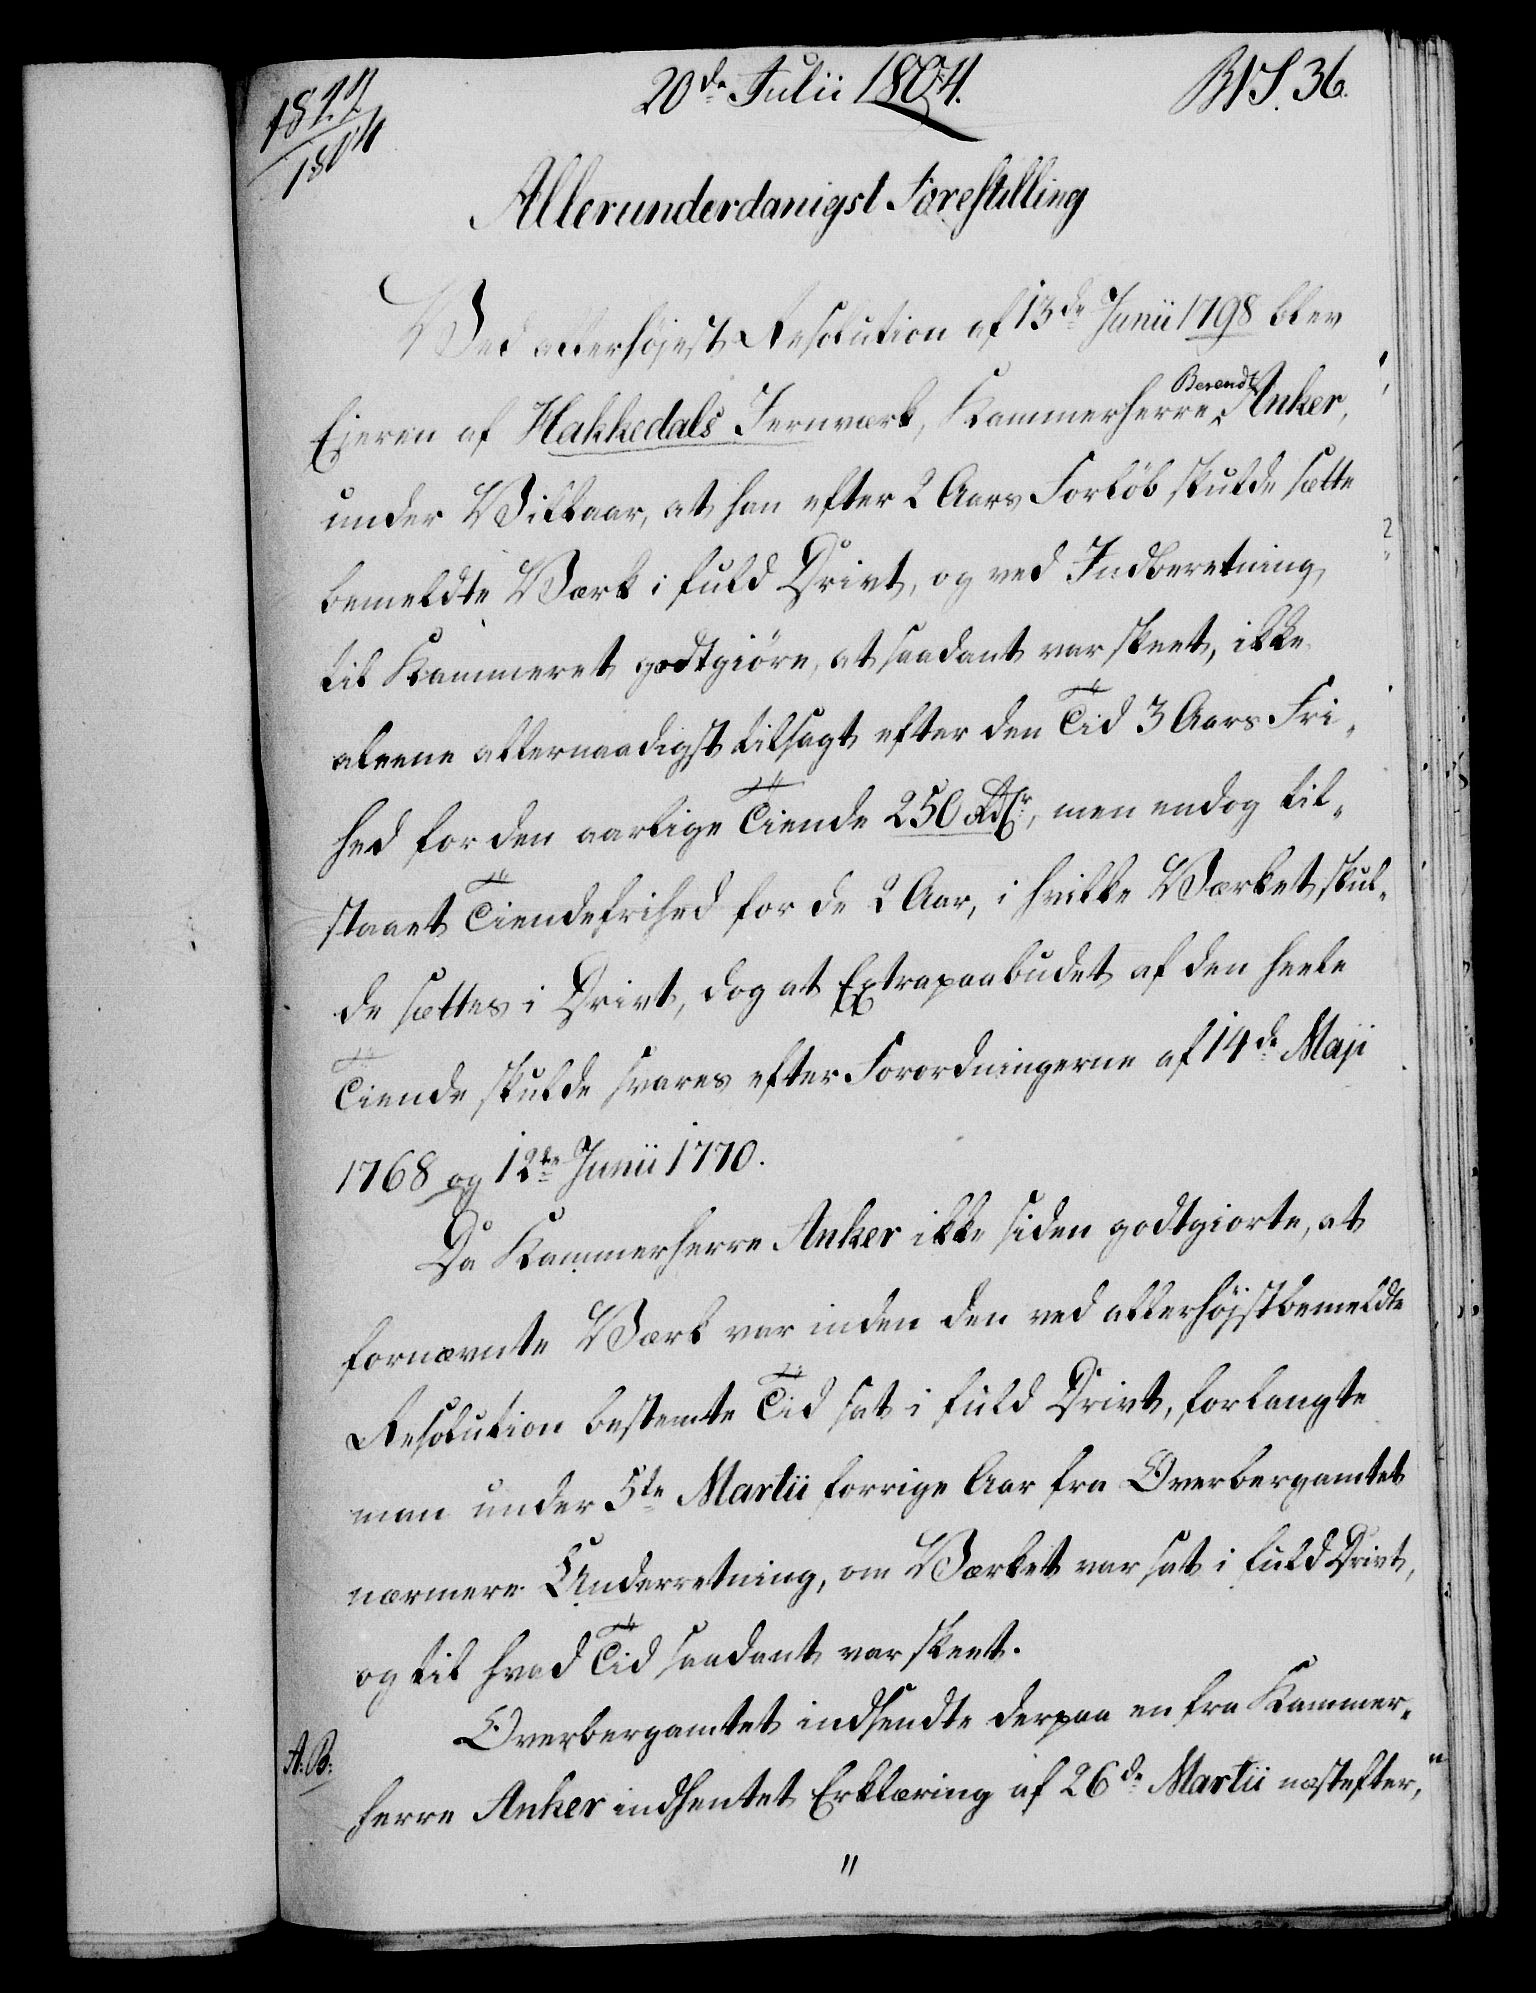 1822
1804
20de Julii 1804.
BVS. 36.
Allerunderdanigst Forestilling
Ved allerhöjest Resolution af 13de Junii 1798 blev
Berendt
Ejeren af Hakkedals Jernværk, Kammerherre Anker,
under Vilkaar, at han efter 2 Aars Forlöb skulde sætte
bemeldte Værk i fuld Drivt, og ved Indberetning
til Kammeret godtgiöre, at saadant var skeet, ikke
aleene allernaadigst tilsagt efter den Tid 3 Aars Fri-
hed for den aarlige Tiende 250 Rdlr, men endog til-
staaet Tiendefrihed for de 2 Aar, i hvilke Værket skul-
de sættes i Drivt, dog at Extrapaabudet af den heele
Tiende skulde svares efter Forordningerne af 14de Maji
1768 og 12te Junii 1770.
Da Kammerherre Anker ikke siden godtgiorte, at
fornævnte Værk var inden den ved allerhöjstbemeldte
Resolution bestemte Tid sat i fuld Drivt, forlangte
man under 5te Martii forrige Aar fra Overbergamtet
nærmere Underretning, om Værket var sat i fuld Drivt,
og til hvad Tid saadant var skeet.
Overbergamtet indsendte derpaa en fra Kammer-
A. B.
herre Anker indhentet Erklæring af 26de Martii næstefter,
"